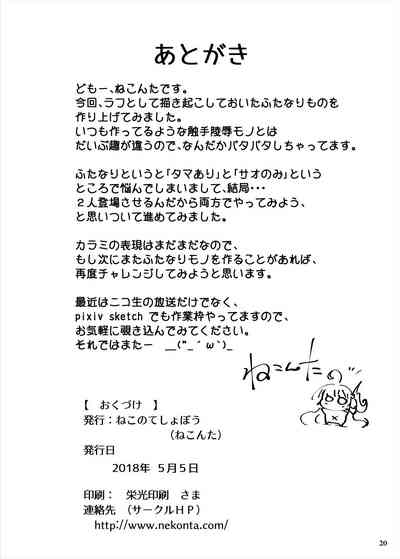 あとがき
どもー、ねこんたです。
今回、ラフとして描き起こしておいたふたなりものを
作り上げてみました。
いつも作ってるような触手陵辱モノとは
だいぶ趣が違うので、なんだかバタバタしちゃってます。
ふたなりというと「タマあり」「サオのみ」という
ところで悩んでしまいまして、結局・・・
２人登場させるんだから両方でやってみよう、
と思いついて進めてみました。
カラミの表現はまだまだなので、
もし次にまたふたなりモノを作ることがあれば、
再度チャレンジしてみようと思います。
最近はニコ生の放送だけでなく、
pixiv sketch でも作業枠やってますので、
お気軽に覗き込んでみてください。
それではまたー　__(“_´ω`)_
ねこんたの
【　おくづけ　】
発行：ねこのてしょぼう
（ねこんた）
発行日
2018年 ５月５日
印刷：　栄光印刷　さま
連絡先　（サークルＨＰ）
http://www.nekonta.com/
20